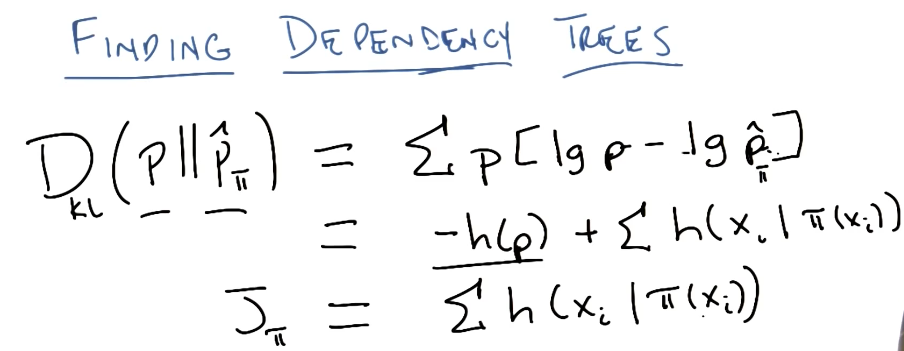 FINDING DEPENDENCY TREES
D_KL(p||p̂_π) = Σ p[lg p - lg p̂_π]
= -h(p) + Σ h(x_i|π(x_i))
J_π = Σ h(x_i|π(x_i))